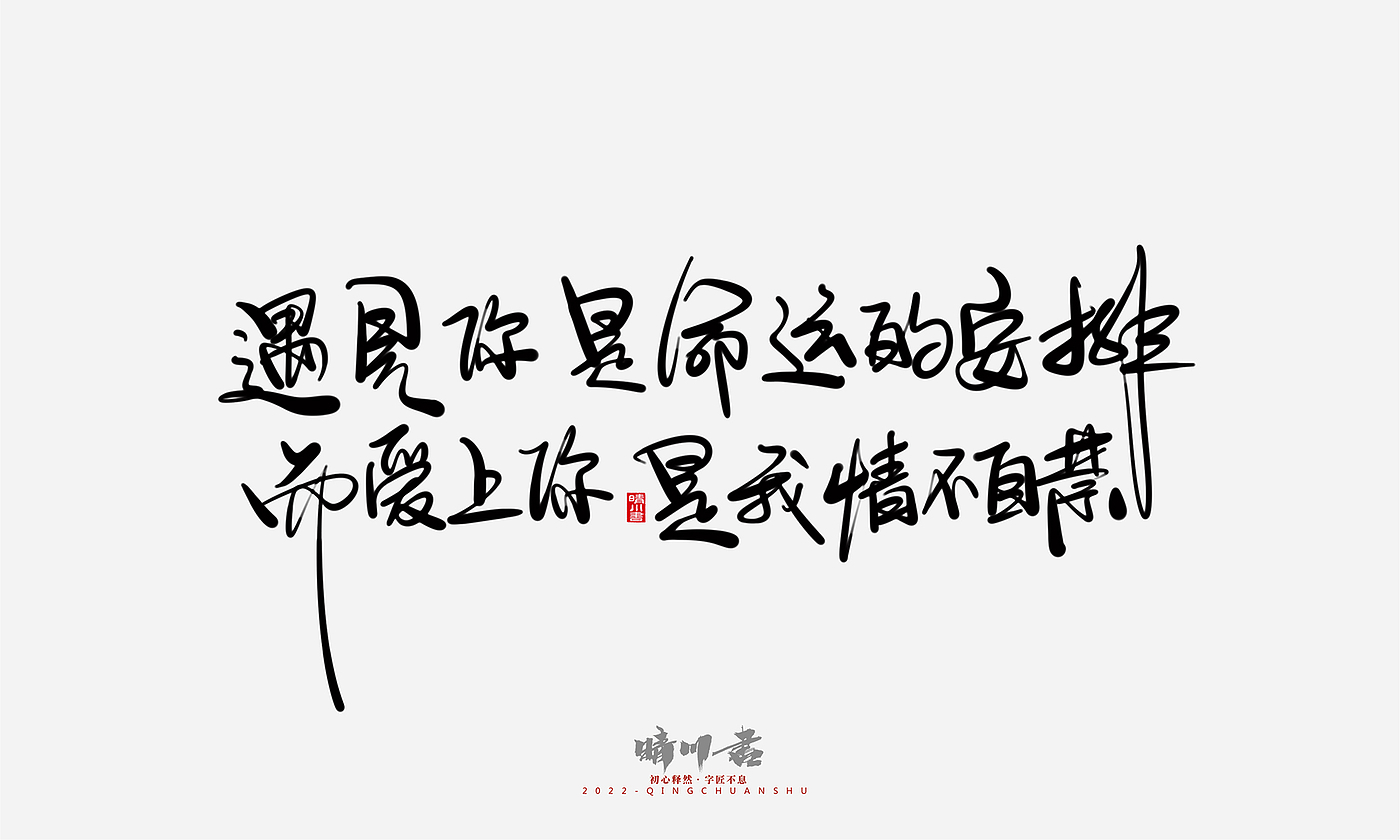 遇见你是命运的安排
而爱上你是我情不自禁
晴川書
晴川書
初心释然·字匠不息
2022-QINGCHUANSHU